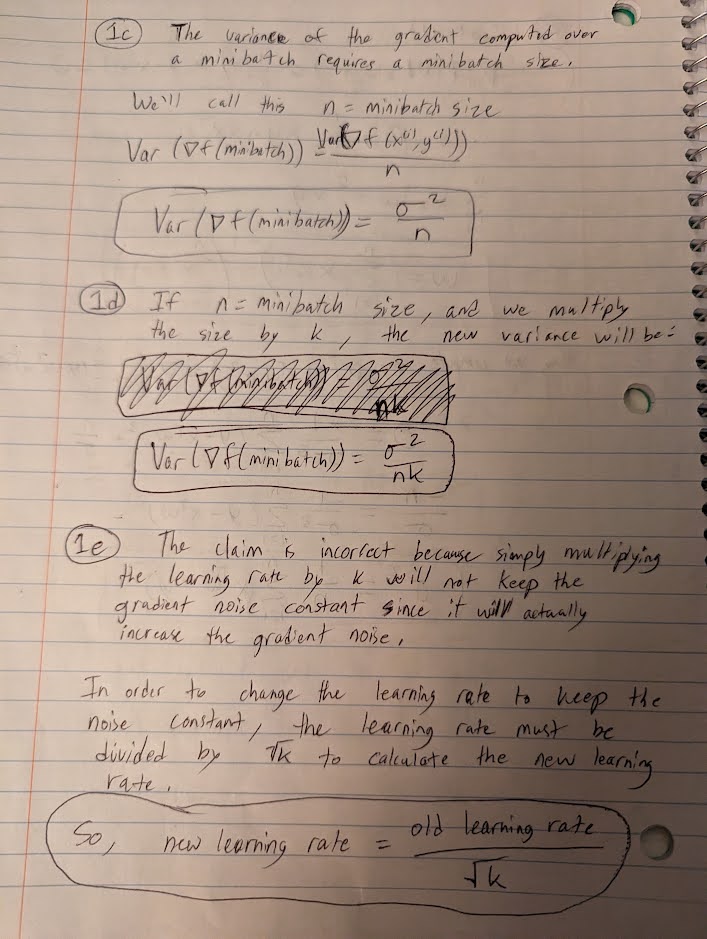 1c The variance of the gradient computed over
a minibatch requires a minibatch size.
We'll call this n = minibatch size
Var (∇f(minibatch)) = Var(∇f(x⁽ⁱ⁾, y⁽ⁱ⁾)) / n
Var (∇f(minibatch)) = σ² / n
1d If n = minibatch size, and we multiply
the size by k, the new variance will be:
Var (∇f(minibatch)) = σ² / nk
1e The claim is incorrect because simply multiplying
the learning rate by k will not keep the
gradient noise constant since it will actually
increase the gradient noise.
In order to change the learning rate to keep the
noise constant, the learning rate must be
divided by √k to calculate the new learning
rate.
So, new learning rate = old learning rate / √k